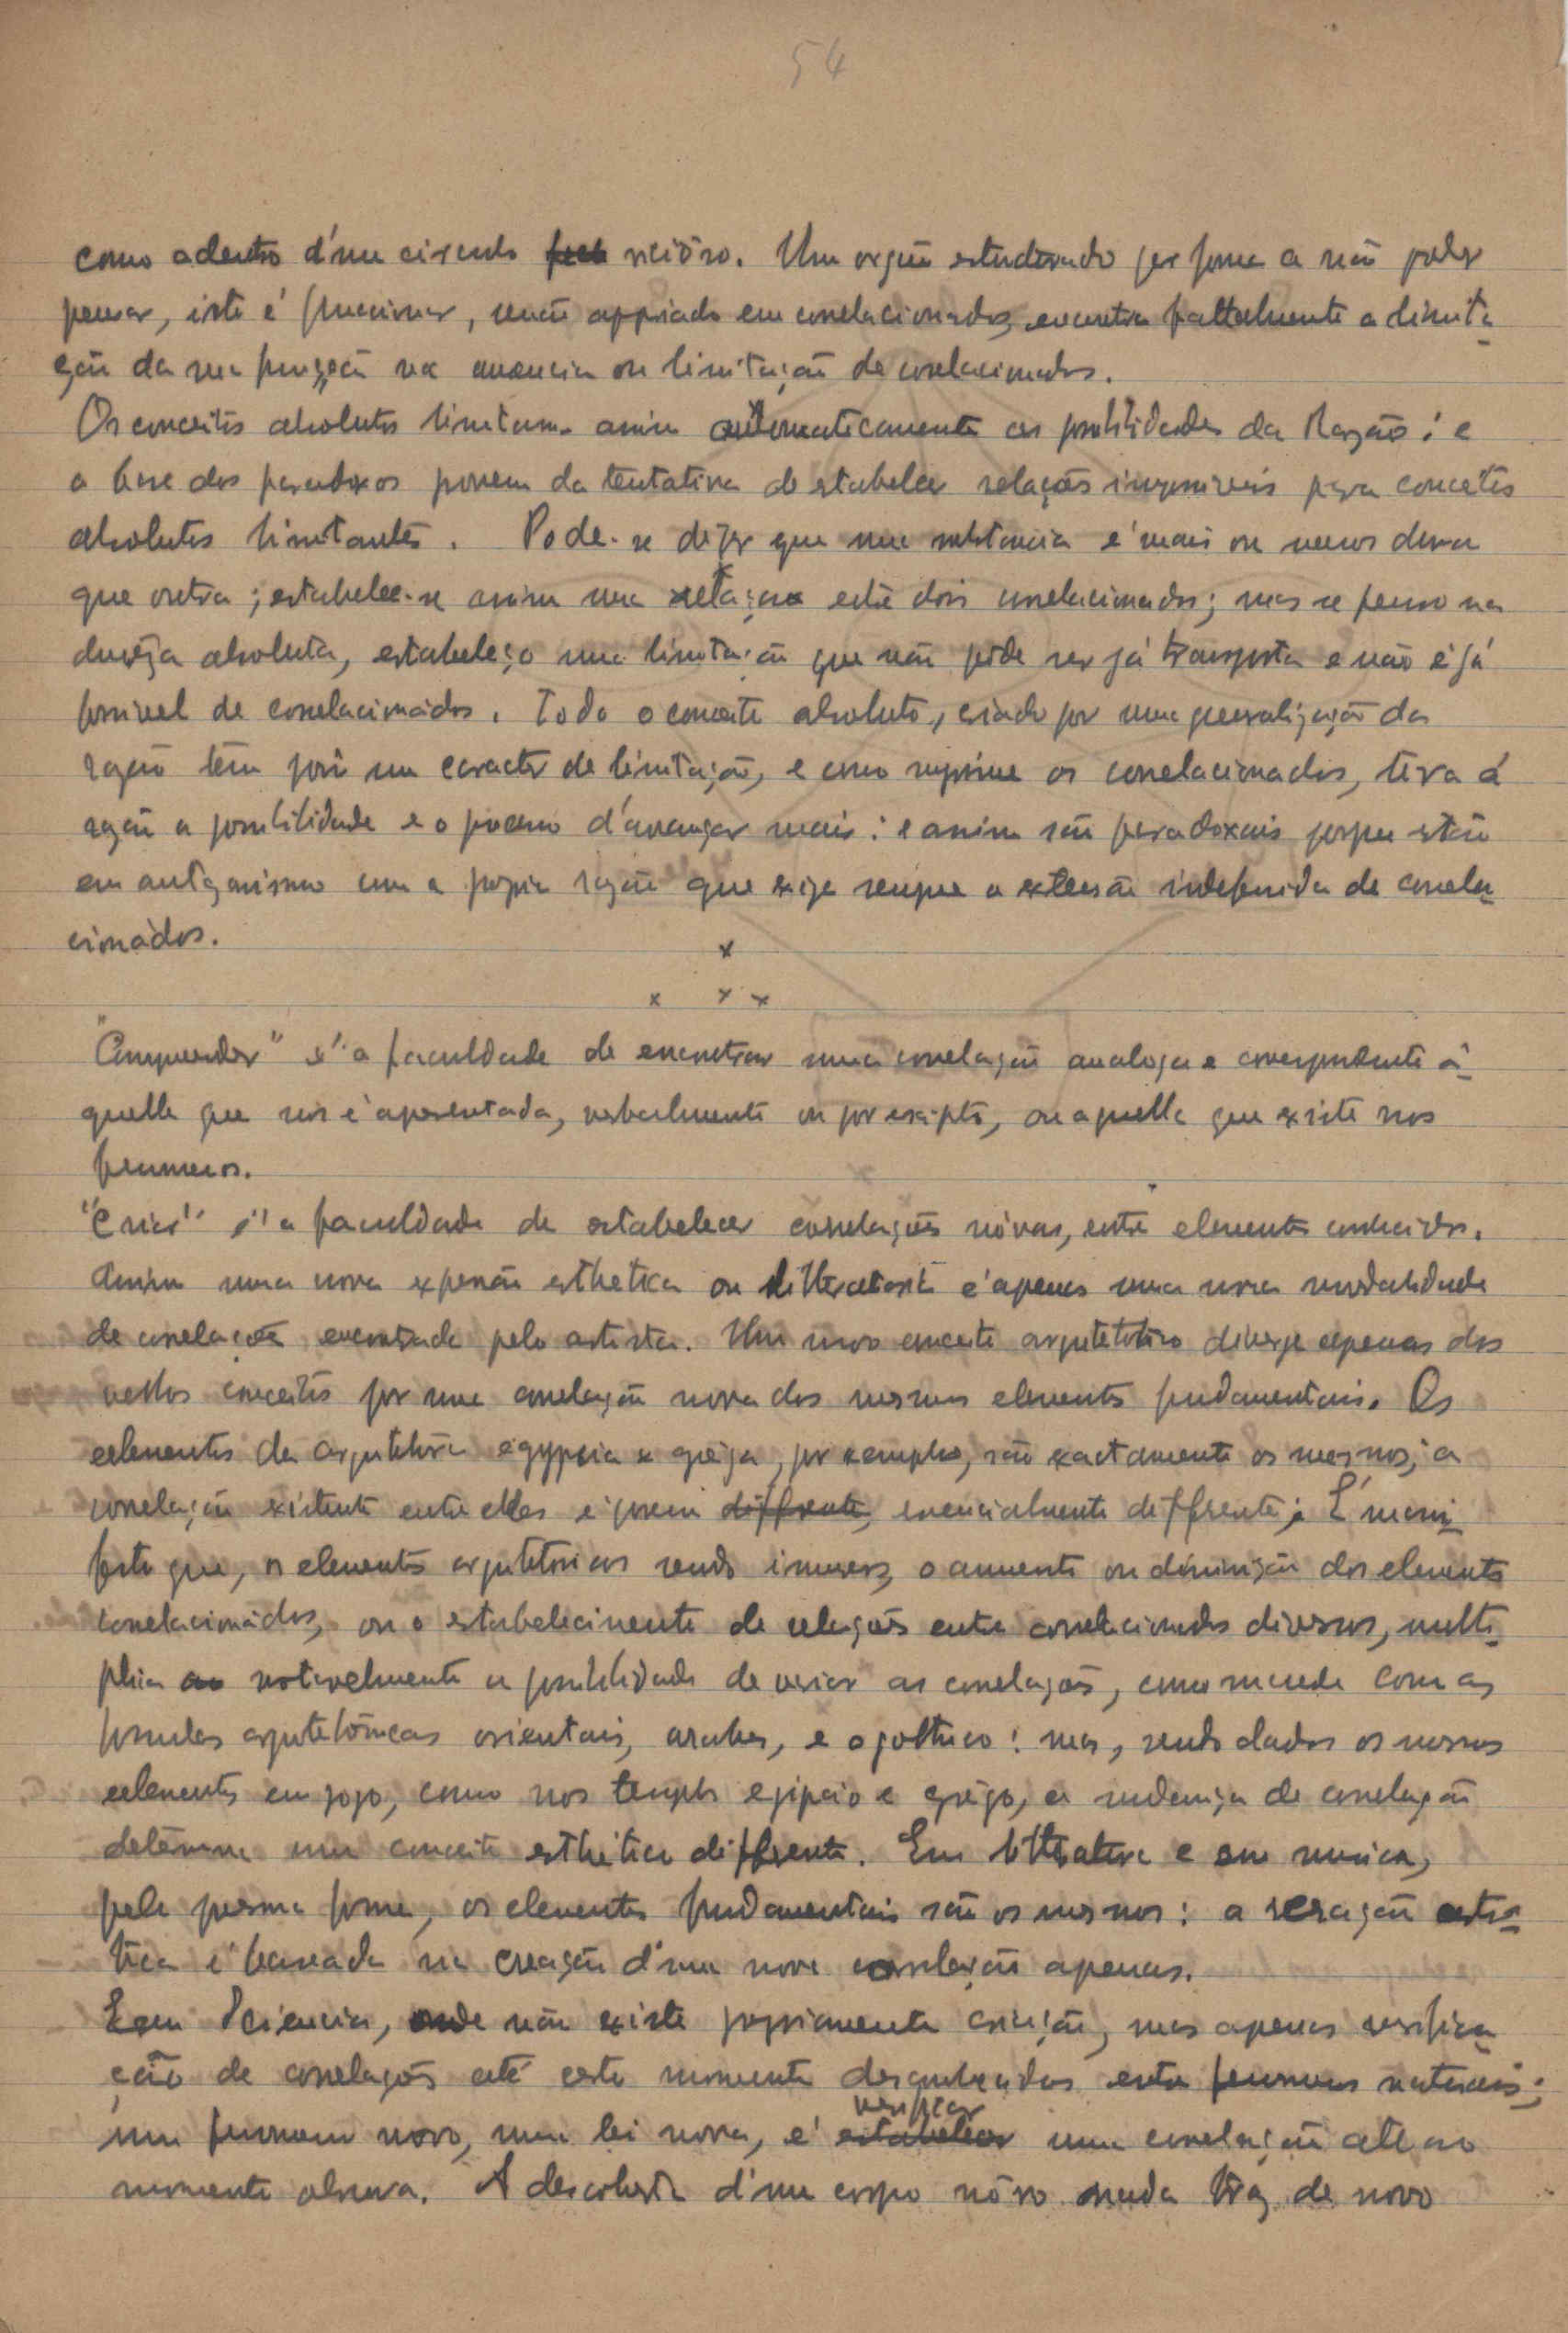 54
como adentro d'um circulo vicioso. Um orgão estructurado por forma a não poder
pensar, isto é funccionar, senão appoiado em correlacionados, encontra fatalmente a limita-
ção da sua funcção na ausencia ou limitação de correlacionados.
Os conceitos absolutos limitam assim automaticamente as possibilidades da Razão: e
a base dos paradoxos provem da tentativa de estabelecer relações impossiveis para conceitos
absolutos limitantes. Pode-se dizer que uma substancia é mais ou menos densa
que outra; estabelece-se assim uma relação entre dois correlacionados; mas se penso na
absoluta, estabeleço uma limitação que não pode ser já transposta e não é já
possivel de correlacionados. Todo o conceito absoluto, criado por uma generalização da
razão tem pois um caracter de limitação, e como suprime os correlacionados, tira á
razão a possibilidade e o processo d'avançar mais: e assim são paradoxais porque estão
em antagonismo com a propria razão que exige sempre a extensão indefinida de correla-
cionádos.
x
x x x
"Comprender" é a faculdade de encontrar uma correlação analoga e correspondente á-
quella que nos é apresentada, verbalmente ou por escripto, ou aquella que existe nos
fenomenos.
"Criar" é a faculdade de estabelecer correlações nóvas, entre elementos conhecidos.
Assim uma nova expressão esthetica ou litteraria é apenas uma nova modalidade
de correlação encontrada pelo artista. Um novo conceito arquitetonico diverge apenas dos
velhos conceitos por uma correlação nova dos mesmos elementos fundamentais. Os
elementos da arquitetura egypcia e grega, por exemplo, são exactamente os mesmos; a
correlação existente entre elles é porem differente, essencialmente differente. É mani-
festo que, os elementos arquitetonicos sendo inumeros, o aumento ou diminuição dos elementos
correlacionádos, ou o estabelecimento de relações entre correlacionados diversos, multi-
plica notavelmente a possibilidade de variar as correlações, como sucede com as
formulas arquitetónicas orientais, arabes, e o gothico: mas, sendo dados os mesmos
elementos em jogo, como nos templos egipcio e grégo, a mudança de correlação
determina um conceito esthético differente. Em litteratura e em musica,
pela mesma forma, os elementos fundamentais são os mesmos: a creação artis-
tica é baseada na creação d'uma nova correlação apenas.
Em Sciencia, onde não existe propriamente criação, mas apenas verifica-
ção de correlações até certo momento desconhecidas entre fenomenos naturais;
um fenomeno novo, uma lei nova, é estabelecer verificar uma correlação até ao
momento obscura. A descoberta d'um corpo nóvo nada traz de novo